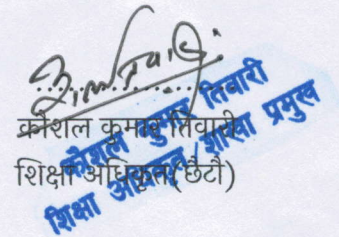 कौशल कुमार तिवारी
शिक्षा अधिकृत(छैटौ)
कौशल कुमार तिवारी
शिक्षा अधिकृत/शाखा प्रमुख